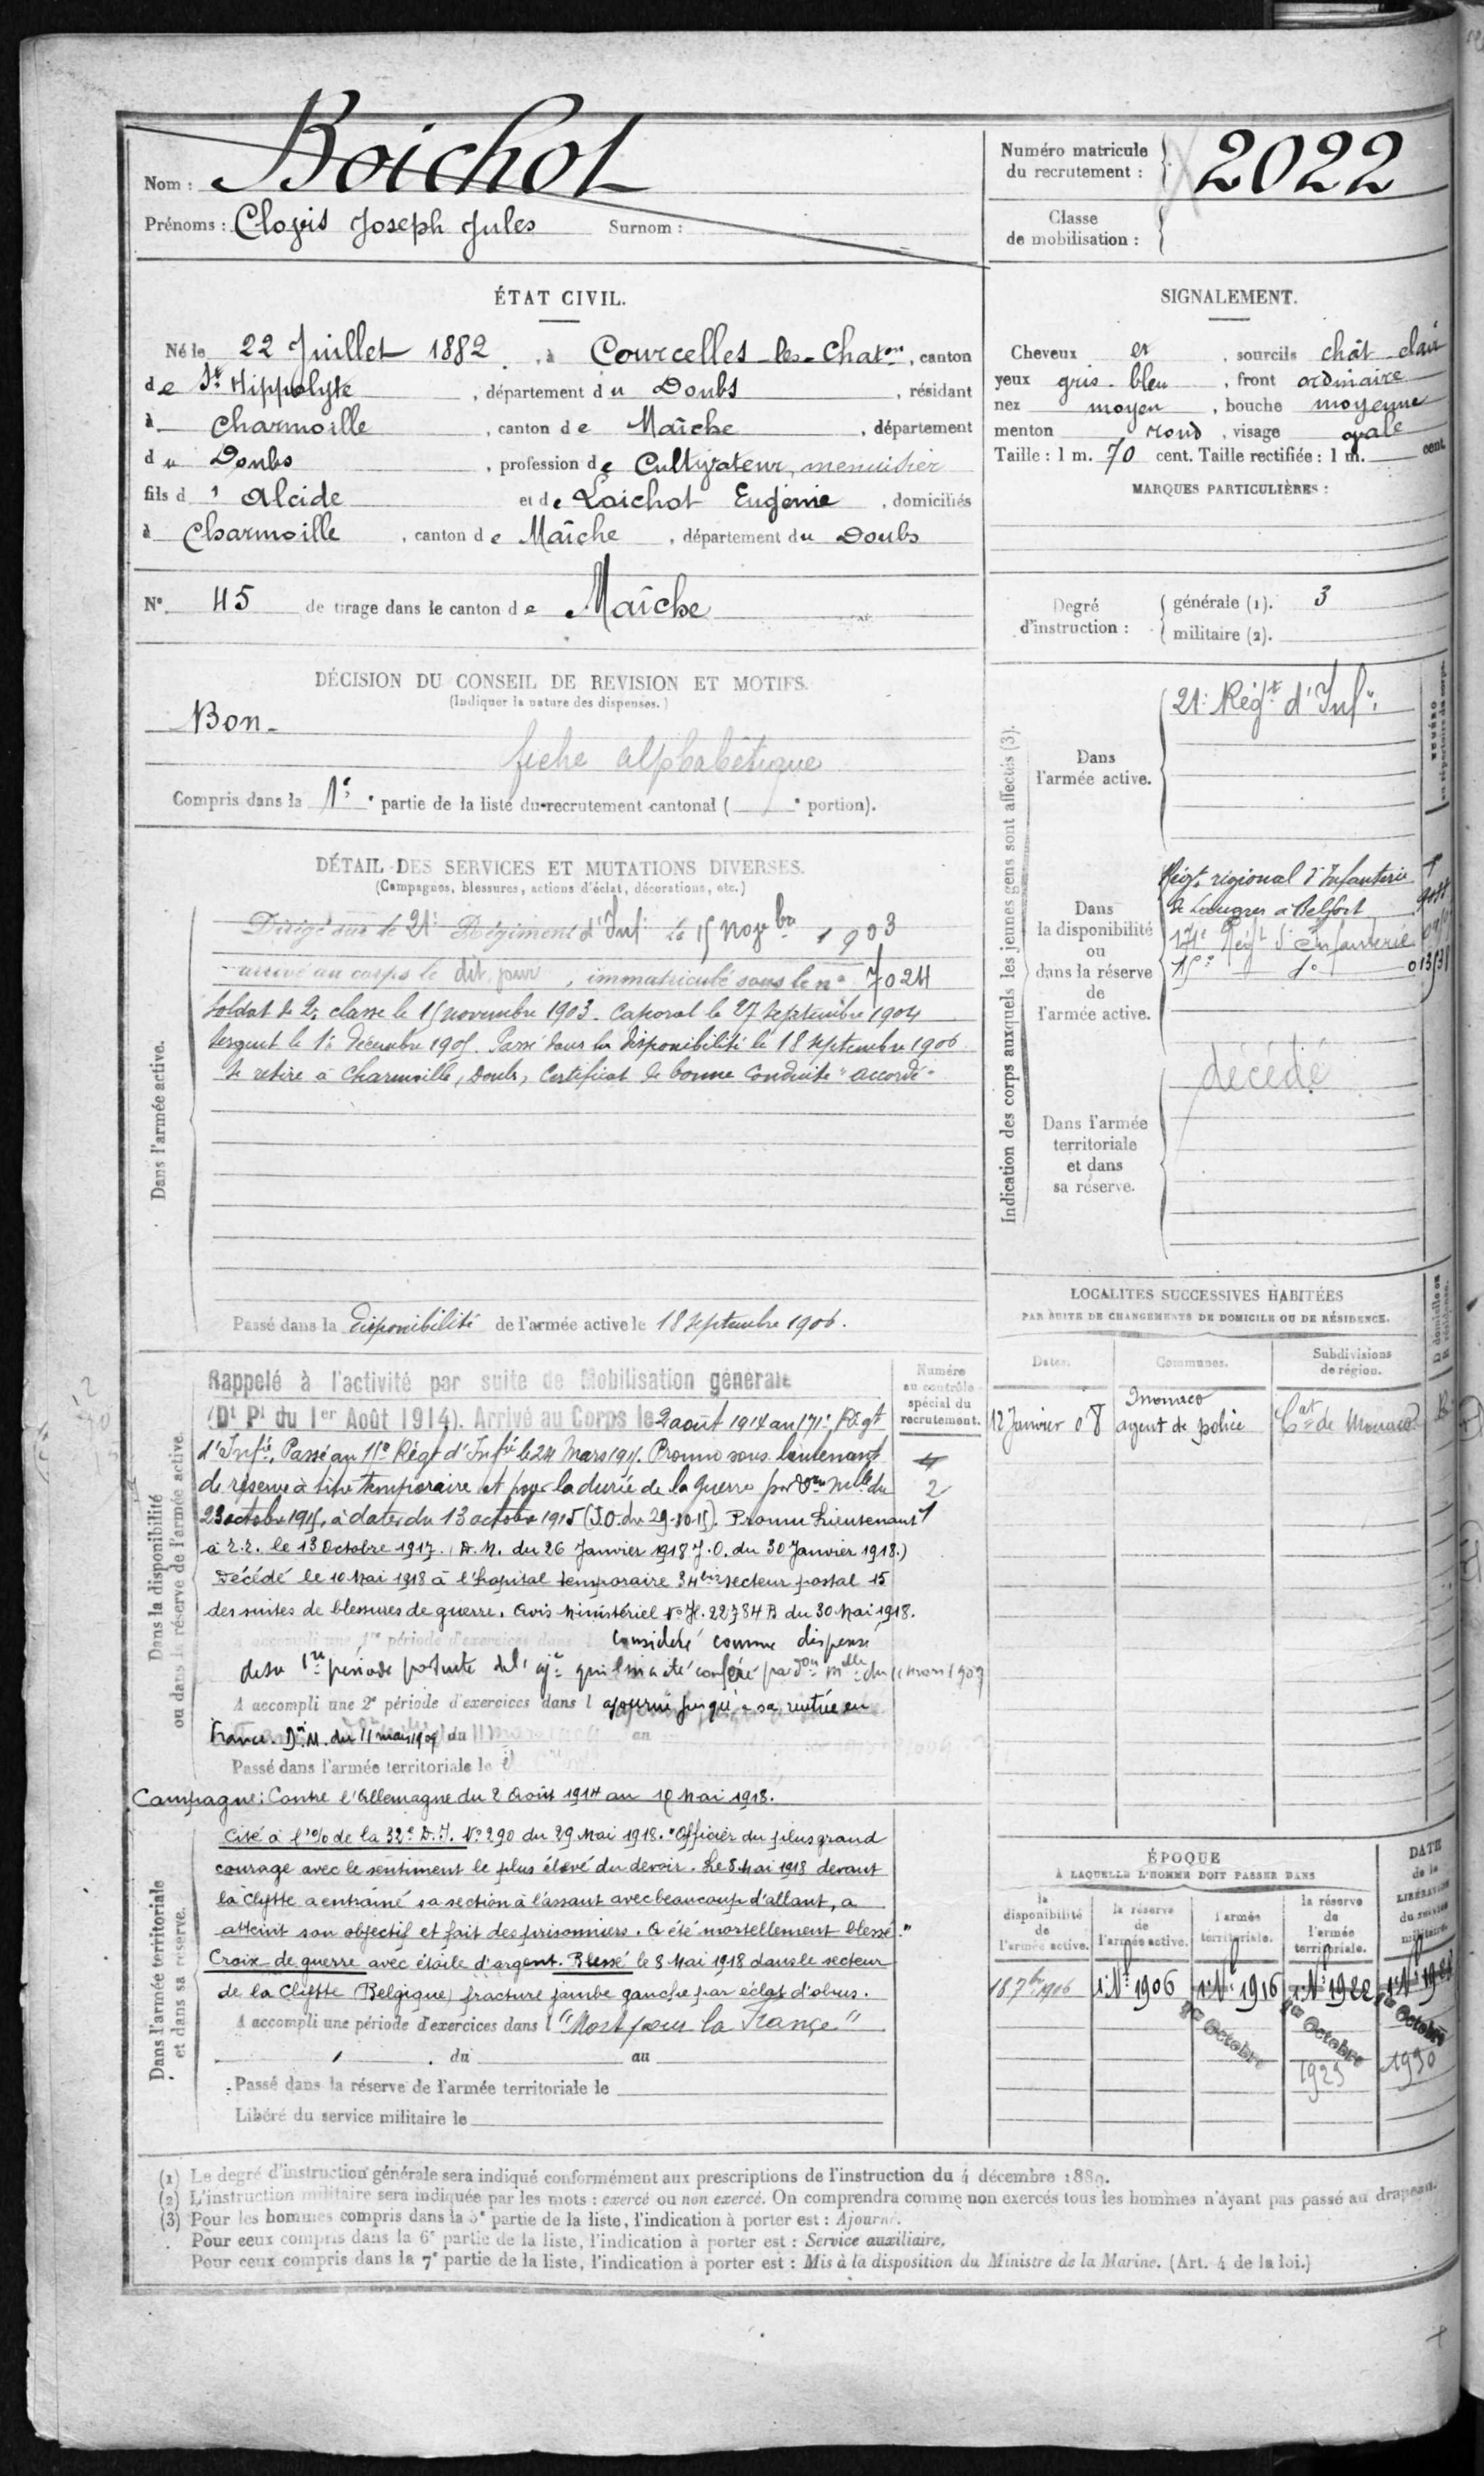 Nom : Boichot
Prénoms : Clovis Joseph Jules Surnom :
Numéro matricule du recrutement : 2022
Classe de mobilisation :
ÉTAT CIVIL.
Né le 22 Juillet 1882, à Courcelles-les-Chat.on, canton
de St Hippolyte, département du Doubs, résidant
à Charmoille, canton de Maîche, département
du Doubs, profession de Cultivateur, menuisier
fils d' Alcide et de Loichot Eugénie, domiciliés
à Charmoille, canton de Maîche, département du Doubs
N° 45 de tirage dans le canton de Maîche
SIGNALEMENT.
Cheveux et, sourcils chât clair
yeux gris-bleu, front ordinaire
nez moyen, bouche moyenne
menton rond, visage ovale
Taille : 1 m. 70 cent. Taille rectifiée : 1 m. cent.
MARQUES PARTICULIÈRES :
Degré d'instruction : générale (1). 3
militaire (2).
DÉCISION DU CONSEIL DE REVISION ET MOTIFS.
(Indiquer la nature des dispenses.)
Bon.
fiche alphabétique
Compris dans la 1e partie de la liste du recrutement cantonal ( e portion).
DÉTAIL DES SERVICES ET MUTATIONS DIVERSES.
(Campagnes, blessures, actions d'éclat, décorations, etc.)
Dans l'armée active.
Dirigé sur le 21e Régiment d'Inf. le 15 Novbre 1903
arrivé au corps le dit jour, immatriculé sous le n° 7024
Soldat de 2e classe le 15 novembre 1903. Caporal le 27 Septembre 1904
Sergent le 1e Décembre 1905. Passé dans la disponibilité le 18 septembre 1906.
Se retire à Charmoille, Doubs, Certificat de bonne Conduite "accordé"
Passé dans la disponibilité de l'armée active le 18 Septembre 1906.
Indication des corps auxquels les jeunes gens sont affectés (3).
NUMÉRO
Dans l'armée active.
21e Régt d'Infie
Dans la disponibilité ou dans la réserve de l'armée active.
Régt régional d'Infanterie
de Langres à Belfort
171e Régt d'Infanterie
15e do
Dans l'armée territoriale et dans sa réserve.
décédé
LOCALITÉS SUCCESSIVES HABITÉES
PAR SUITE DE CHANGEMENTS DE DOMICILE OU DE RÉSIDENCE.
Dates. Communes. Subdivisions de région.
12 Janvier 08 Monaco agent de police Cat de Monaco
Dans la disponibilité ou dans la réserve de l'armée active.
Numéro au contrôle spécial du recrutement.
4
2
1
Rappelé à l'activité par suite de Mobilisation générale
(Dt Pl du 1er Août 1914). Arrivé au Corps le 2 août 1914 au 171e Régt
d'Infie. Passé au 15e Régt d'Infie le 24 Mars 1915. Promu sous lieutenant
de réserve à titre temporaire et pour la durée de la Guerre par Don Mlle du
23 octobre 1915, à dater du 13 octobre 1915 (J.O. du 29-10-15). Promu Lieutenant
à T.T. le 13 Octobre 1917. (D.M. du 26 Janvier 1918 J.O. du 30 Janvier 1918.)
Décédé le 10 Mai 1918 à l'hopital temporaire 34bis secteur postal 15
des suites de blessures de guerre. Avis Ministériel N° H. 22784 B du 30 Mai 1918.
A accompli une 1re période d'exercices dans l Considéré comme dispensé
de sa 1re période par suite de l' qui lui a été conféré par don mlle du 11 mars 1909
A accompli une 2e période d'exercices dans l ajourné jusqu'à sa rentrée en
France. D.M. du 11 mars 1909 du au
Passé dans l'armée territoriale le
Campagne : Contre l'Allemagne du 2 Août 1914 au 10 Mai 1918.
Dans l'armée territoriale et dans sa réserve.
Cité à l'o/o de la 32e D.I. N° 290 du 29 Mai 1918. "Officier du plus grand
courage avec le sentiment le plus élevé du devoir. Le 8 Mai 1918 devant
la Clytte a entraîné sa section à l'assaut avec beaucoup d'allant, a
atteint son objectif et fait des prisonniers. A été mortellement blessé."
Croix de guerre avec étoile d'argent. Blessé le 8 Mai 1918 dans le secteur
de la Clytte (Belgique) fracture jambe gauche par éclat d'obus.
A accompli une période d'exercices dans l "Mort pour la France"
du au
Passé dans la réserve de l'armée territoriale le
Libéré du service militaire le
ÉPOQUE
À LAQUELLE L'HOMME DOIT PASSER DANS
la disponibilité de l'armée active.
la réserve de l'armée active.
l'armée territoriale.
la réserve de l'armée territoriale.
DATE de la LIBÉRATION du service militaire.
18 7bre 1906 1er Nbre 1906 1er Nbre 1916 1er Nbre 1922
1er Octobre 1er Octobre 1er Octobre
1923 1930
(1) Le degré d'instruction générale sera indiqué conformément aux prescriptions de l'instruction du 4 décembre 1889.
(2) L'instruction militaire sera indiquée par les mots : exercé ou non exercé. On comprendra comme non exercés tous les hommes n'ayant pas passé au drapeau.
(3) Pour les hommes compris dans la 5e partie de la liste, l'indication à porter est : Ajourné.
Pour ceux compris dans la 6e partie de la liste, l'indication à porter est : Service auxiliaire.
Pour ceux compris dans la 7e partie de la liste, l'indication à porter est : Mis à la disposition du Ministre de la Marine. (Art. 4 de la loi.)